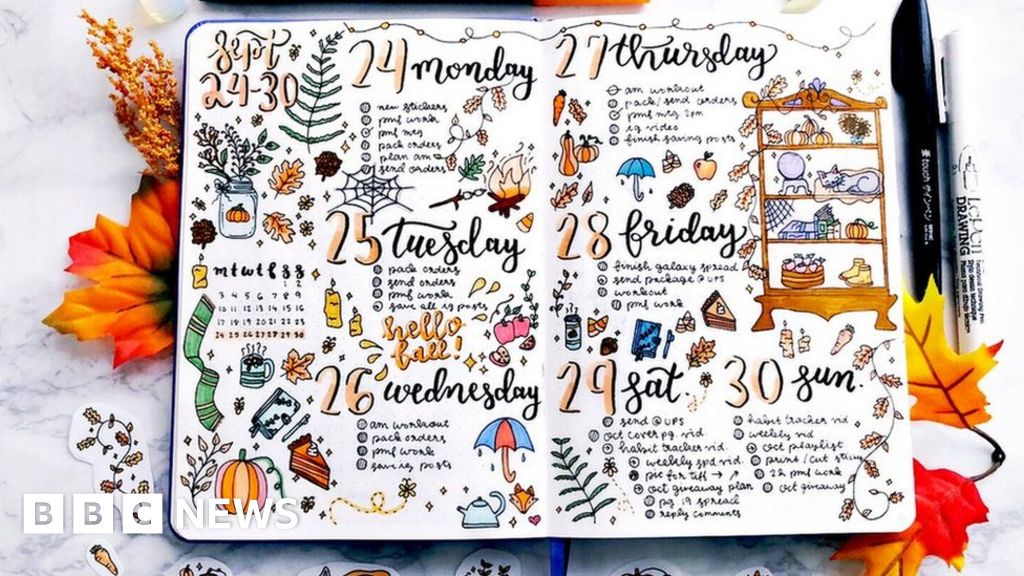 sept
24-30
24 monday
new stickers
pmf work
pmf mtg
pack orders
plan am
send orders
25 tuesday
pack orders
send orders
pmf work
save all ig posts
m t w t f s s
1 2
3 4 5 6 7 8 9
10 11 12 13 14 15 16
17 18 19 20 21 22 23
24 25 26 27 28 29 30
hello
fall!
26 wednesday
am workout
pack orders
pmf work
save ig posts
27 thursday
am workout
pack/send orders
pmf mtg 2pm
ig video
finish saving posts
28 friday
finish galaxy spread
send package @ UPS
workout
pmf work
29 sat.
send @ UPS
oct cover pg. vid.
habit tracker vid.
weekly spd vid.
pic for tiff
oct giveaway plan
pg. 19 spread
reply comments
30 sun.
habit tracker vid
weekly vid
oct playlist
print/cut
pmf work
oct giveaway
touch サインペン
DRAWING
BBC NEWS